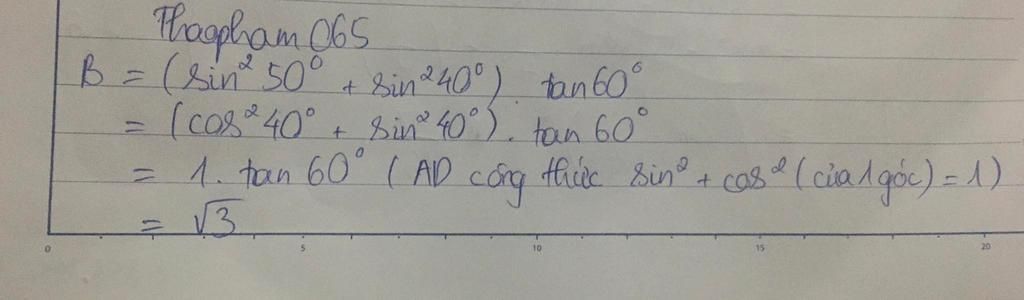 Thaopham065
B = (sin² 50° + sin² 40°). tan 60°
= (cos² 40° + sin² 40°). tan 60°
= 1. tan 60° ( AD công thức sin² + cos² (của 1 góc) = 1)
= √3
0 5 10 15 20